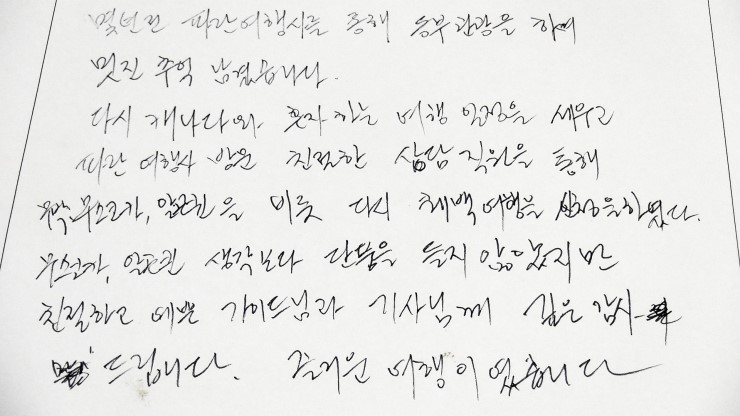 몇번은 파란여행사를 통해 동부관광을 하며
멋진 추억 남겼습니다.
다시 캐나다와 혼자하는 여행 일정을 세우고
파란 여행사 방문 친절한 상담 직원을 통해
무스코카, 알곤퀸을 비롯 다시 퀘백여행을 하였다.
알곤퀸 생각보다 단풍을 들지 않았지만
친절하고 예쁜 가이드님과 기사님께 깊은 감사
드립니다. 즐거운 여행이었습니다